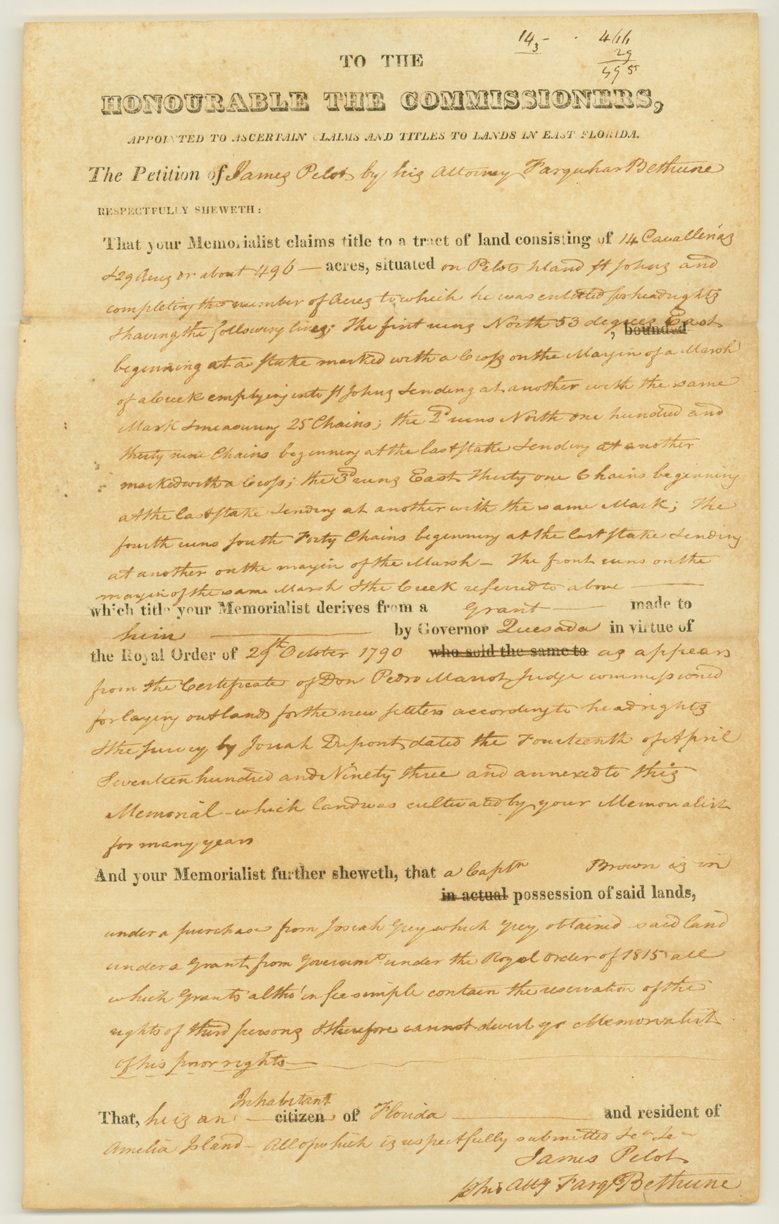 14 3 - 466
29
495
TO THE
HONOURABLE THE COMMISSIONERS,
APPOINTED TO ASCERTAIN CLAIMS AND TITLES TO LANDS IN EAST FLORIDA.
The Petition of James Pelot by his Attorney Farquhar Bethune
RESPECTFULLY SHEWETH:
That your Memorialist claims title to a tract of land consisting of 14 Cavallerias
& 29 Acres or about 496 — acres, situated on Pelots Island St Johns and
completing the number of Acres to which he was entitled for headrights
& having the following lines: The first runs North 53 degrees East, bounded
beginning at a stake marked with a Cross on the Margin of a Marsh
of a Creek emptying into St Johns & ending at another with the same
Mark & measuring 25 Chains; the 2d runs North one hundred and
thirty nine Chains beginning at the last stake & ending at another
marked with a Cross; the 3d runs East Thirty one Chains beginning
at the last stake & ending at another with the same Mark; The
fourth runs South Forty Chains beginning at the last stake & ending
at another on the margin of the Marsh — The front runs on the
margin of the same Marsh & the Creek referred to above —
which title your Memorialist derives from a Grant — made to
him — by Governor Quesada in virtue of
the Royal Order of 29th October 1790 who sold the same to as appears
from the Certificate of Don Pedro Marrot Judge commissioned
for laying out lands for the new settlers according to headrights
& the survey by Josiah Dupont dated the Fourteenth of April
Seventeen hundred and Ninety three and annexed to this
Memorial - which land was cultivated by your Memorialist
for many years
And your Memorialist further sheweth, that a Captn Brown is in
in actual possession of said lands,
under a purchase from Josiah Grey which Grey obtained said land
under a Grant from Governmt under the Royal Order of 1815 all
which Grants altho' in fee simple contain the reservation of the
rights of third persons & therefore cannot divest yr Memorialist
of his prior rights —
Inhabitant
That, he is an citizen of Florida — and resident of
Amelia Island - All of which is respectfully submitted &c &c
James Pelot
by his Atty Farqr Bethune